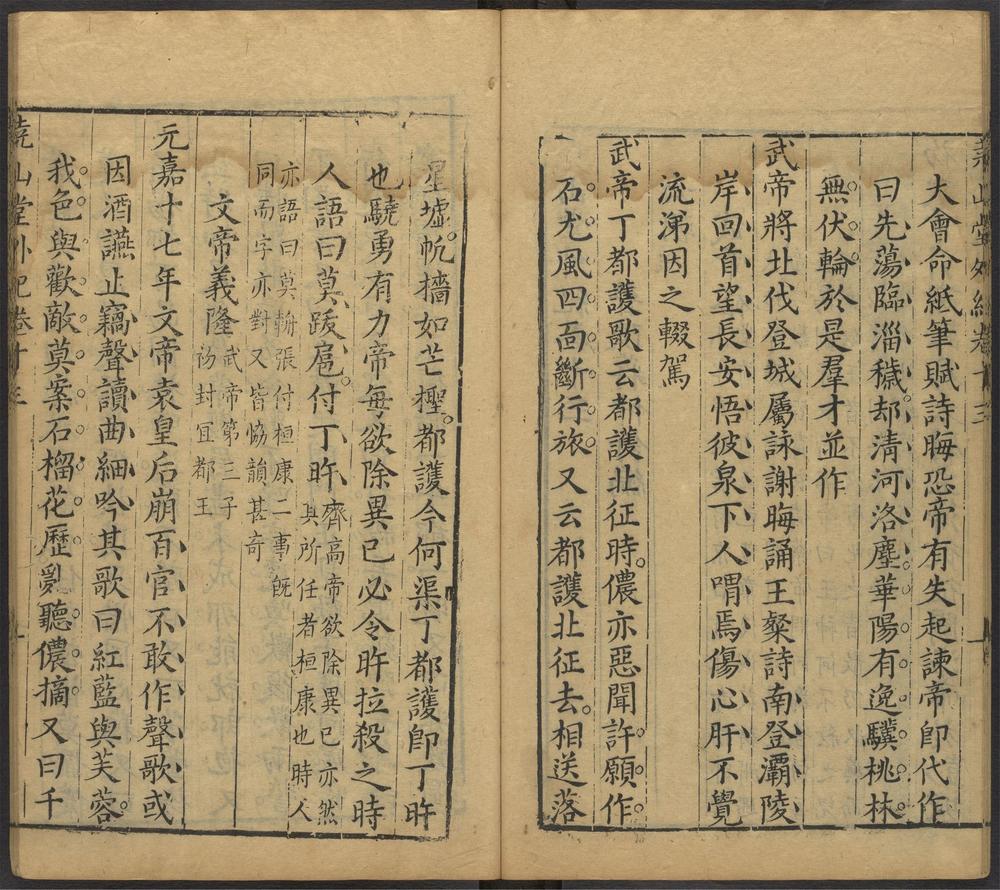 堯山堂外紀卷十三
大會命紙筆賦詩晦恐帝有失起諫帝卽代作
曰先蕩臨淄穢却清河洛塵華陽有逸驥桃林
無伏輪於是羣才並作
武帝將北伐登城屬詠謝晦誦王粲詩南登灞陵
岸回首望長安悟彼泉下人喟焉傷心肝不覺
流涕因之輟駕
武帝丁都護歌云都護北征時儂亦惡聞許願作
石尤風四面斷行旅又云都護北征去相送落
星墟帆檣如芒檉都護今何渠丁都護卽丁旿
也驍勇有力帝每欲除異已必令旿拉殺之時
人語曰莫跋扈付丁旿齊高帝欲除異已亦然其所任者桓康也時人
亦語曰莫輈張付桓康二事旣同而字亦對又皆恊韻甚奇
文帝義隆武帝第三子初封冝都王
元嘉十七年文帝袁皇后崩百官不敢作聲歌或
因酒讌止竊聲讀曲細吟其歌曰紅藍與芙蓉
我色與歡敵莫案石榴花歷亂聽儂摘又曰千
堯山堂外紀卷十三